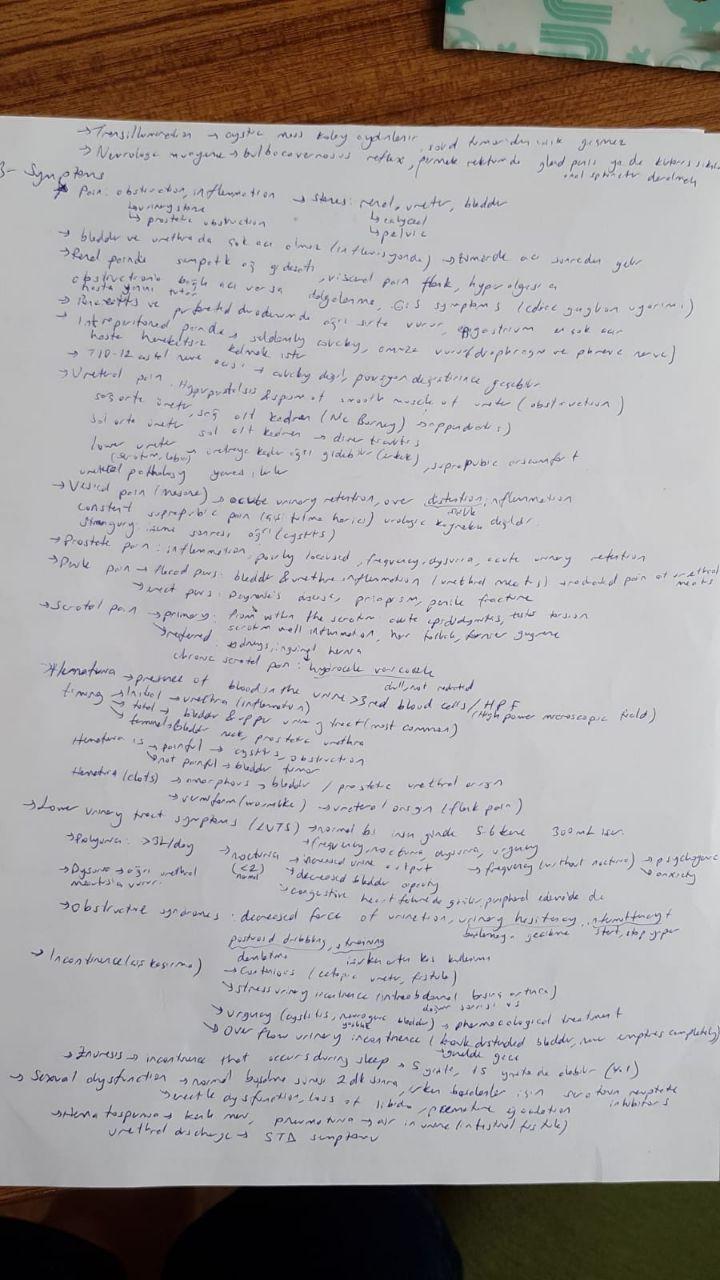 → Transillumination → cystic mass kolay aydınlanır, solid tümörden ışık geçmez
→ Neurologic muayene → bulbocavernosus reflex, parmak rektumda glans penis ya da klitoris sıkılır anal sphincter daralmalı
3- Symptoms
* Pain: obstruction, inflammation → stones: renal, ureter, bladder
↳ urinary stone ↳ calyceal
↳ prostatic obstruction ↳ pelvic
→ bladder ve urethrada çok acı olmaz (inflamasyonda) → tümörde acı sonradan gelir
→ Renal painde sempatik ağ gidişatı, visceral pain flank, hyperalgesia
obstruction'a bağlı acı varsa dalgalanma, GIS symptoms (celiac ganglion uyarımı)
hasta yanını tutar
→ Pancreatitis ve perforated duodenumda ağrı sırta vurur, epigastrium en çok acır
→ Intraperitoneal painde → seldomly colicky, omuza vurur (diaphragm ve phrenic nerve)
hasta hareketsiz kalmak ister
→ T10-12 costal nerve acısı → colicky değil, pozisyon değiştirince geçebilir
→ Ureteral pain: Hyperperistalsis & spasm of smooth muscle of ureter (obstruction)
sağ orta ureter, sağ alt kadran (Mc Burney) → appendicitis)
sol orta ureter sol alt kadran → diverticulitis
lower ureter → üretraya kadar ağrı gidebilir (erkek), suprapubic discomfort
(scrotum, labia)
ureteral pathology yavaş ilerler
→ Vesical pain (mesane) → acute urinary retention, over distention, inflammation
constant suprapubic pain urologic kaynaklı değildir.
strangury: işeme sonrası ağrı (cystitis)
→ Prostatic pain: inflammation, poorly localized, frequency, dysuria, acute urinary retention
→ Penile pain → flaccid penis: bladder & urethra inflammation (urethral meatus) → radiated pain at urethral meatus
↳ erect penis: Peyronie's disease, priapism, penile fracture
→ Scrotal pain → primary: from within the scrotum: acute epididymitis, testis torsion
↳ referred: scrotum wall inflammation, hair follicle, fournier gangrene
kidneys, inguinal hernia
chronic scrotal pain: hydrocele varicocele
dull, not radiated
* Hematuria → presence of blood in the urine >3 red blood cells / HPF
timing → Initial → urethra (inflammation) (High power microscopic field)
↳ total → bladder & upper urinary tract (most common)
↳ terminal → bladder neck, prostatic urethra
Hematuria is → painful → cystitis, obstruction
↳ not painful → bladder tumor
Hematuria (clots) → amorphous → bladder / prostatic urethral origin
↳ vermiform (wormlike) → ureteral origin (flank pain)
→ Lower urinary tract symptoms (LUTS) → normal bir insan günde 5-6 kere 300 mL işer.
↳ frequency, nocturia, dysuria, urgency
→ Polyuria: >3L/day → nocturia → increased urine output → frequency (without nocturia) → psychogenic
(<2) normal ↳ decreased bladder capacity ↳ anxiety
→ Dysuria → ağrı urethral meatus'a vurur. ↳ congestive heart failure'da görülür, peripheral edemada da
→ Obstructive syndromes: decreased force of urination, urinary hesitancy, intermittency
başlamayı geciktirme start, stop yapar
postvoid dribbling, straining
damlatma
→ Incontinence (kaçırma) → Continuous (ectopic ureter, fistula)
↳ stress urinary incontinence (intraabdominal basınç artınca)
doğum sonrası vs
↳ urgency (cystitis, neurogenic bladder) → pharmacological treatment
↳ Over flow urinary incontinence (distended bladder, never empties completely)
→ Enuresis → incontinence that occurs during sleep → 5 yrs'ta, 15 yrs'ta da olabilir (%1)
→ Sexual dysfunction → normal boşalma süresi 2 dk sonra, erken boşalanlar için serotonin reuptake inhibitors
↳ erectile dysfunction, loss of libido, premature ejaculation
→ Hematospermia → kanlı meni, pneumaturia → air in urine (intestinal fistula)
urethral discharge → STD semptomu